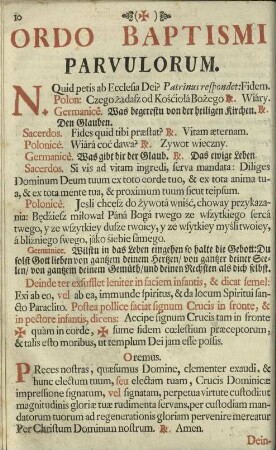 10 (✠)
ORDO BAPTISMI
PARVULORUM.
N. Quid petis ab Ecclesia Dei? Patrinus respondet: Fidem.
Polon: Czego żadasz od Kościołá Bożego ℟. Wiáry.
Germanicè. Was begerestu von der heiligen Kirchen. ℟.
Den Glauben.
Sacerdos. Fides quid tibi præstat? ℟. Vitam æternam.
Polonicè. Wiárá coć dawa? ℟. Zywot wieczny.
Germanicè. Was gibt dir der Glaub. ℟. Das ewige Leben.
Sacerdos. Si vis ad vitam ingredi, serva mandata: Diliges
Dominum Deum tuum ex toto corde tuo, & ex tota anima tu-
a, & ex tota mente tua, & proximum tuum sicut teipsum.
Polonicè. Jesli chcesz do żywotá wniść, choway przykaza-
nia: Będziesz miłował Páná Bogá twego ze wszytkiego sercá
twego, y ze wszytkiey dusze twoiey, y ze wszytkiey myśli twoiey,
á bliźniego swego, jáko siebie sámego.
Germanicè. Wilstu in das Leben eingehen so halte die Gebott: Du
solst Gott lieben von gantzem deinem Hertzen, von gantzer deiner See-
len, von gantzem deinem Gemüth, und deinen Nechsten als dich selbst.
Deinde ter exsufflet leniter in faciem infantis, & dicat semel:
Exi ab eo, vel ab ea, immunde spiritus, & da locum Spiritui san-
cto Paraclito. Postea pollice faciat signum Crucis in fronte, &
in pectore infantis, dicens: Accipe signum Crucis tam in fronte
✠ quàm in corde, ✠ sume fidem cœlestium præceptorum,
& talis esto moribus, ut templum Dei jam esse possis.
Oremus.
PReces nostras, quæsumus Domine, clementer exaudi, &
hunc electum tuum, seu electam tuam, Crucis Dominicæ
impressione signatum, vel signatam, perpetua virtute custodi: ut
magnitudinis gloriæ tuæ rudimenta servans, per custodiam man-
datorum tuorum ad regenerationis gloriam pervenire mereatur.
Per Christum Dominum nostrum. ℟. Amen.
Dein-